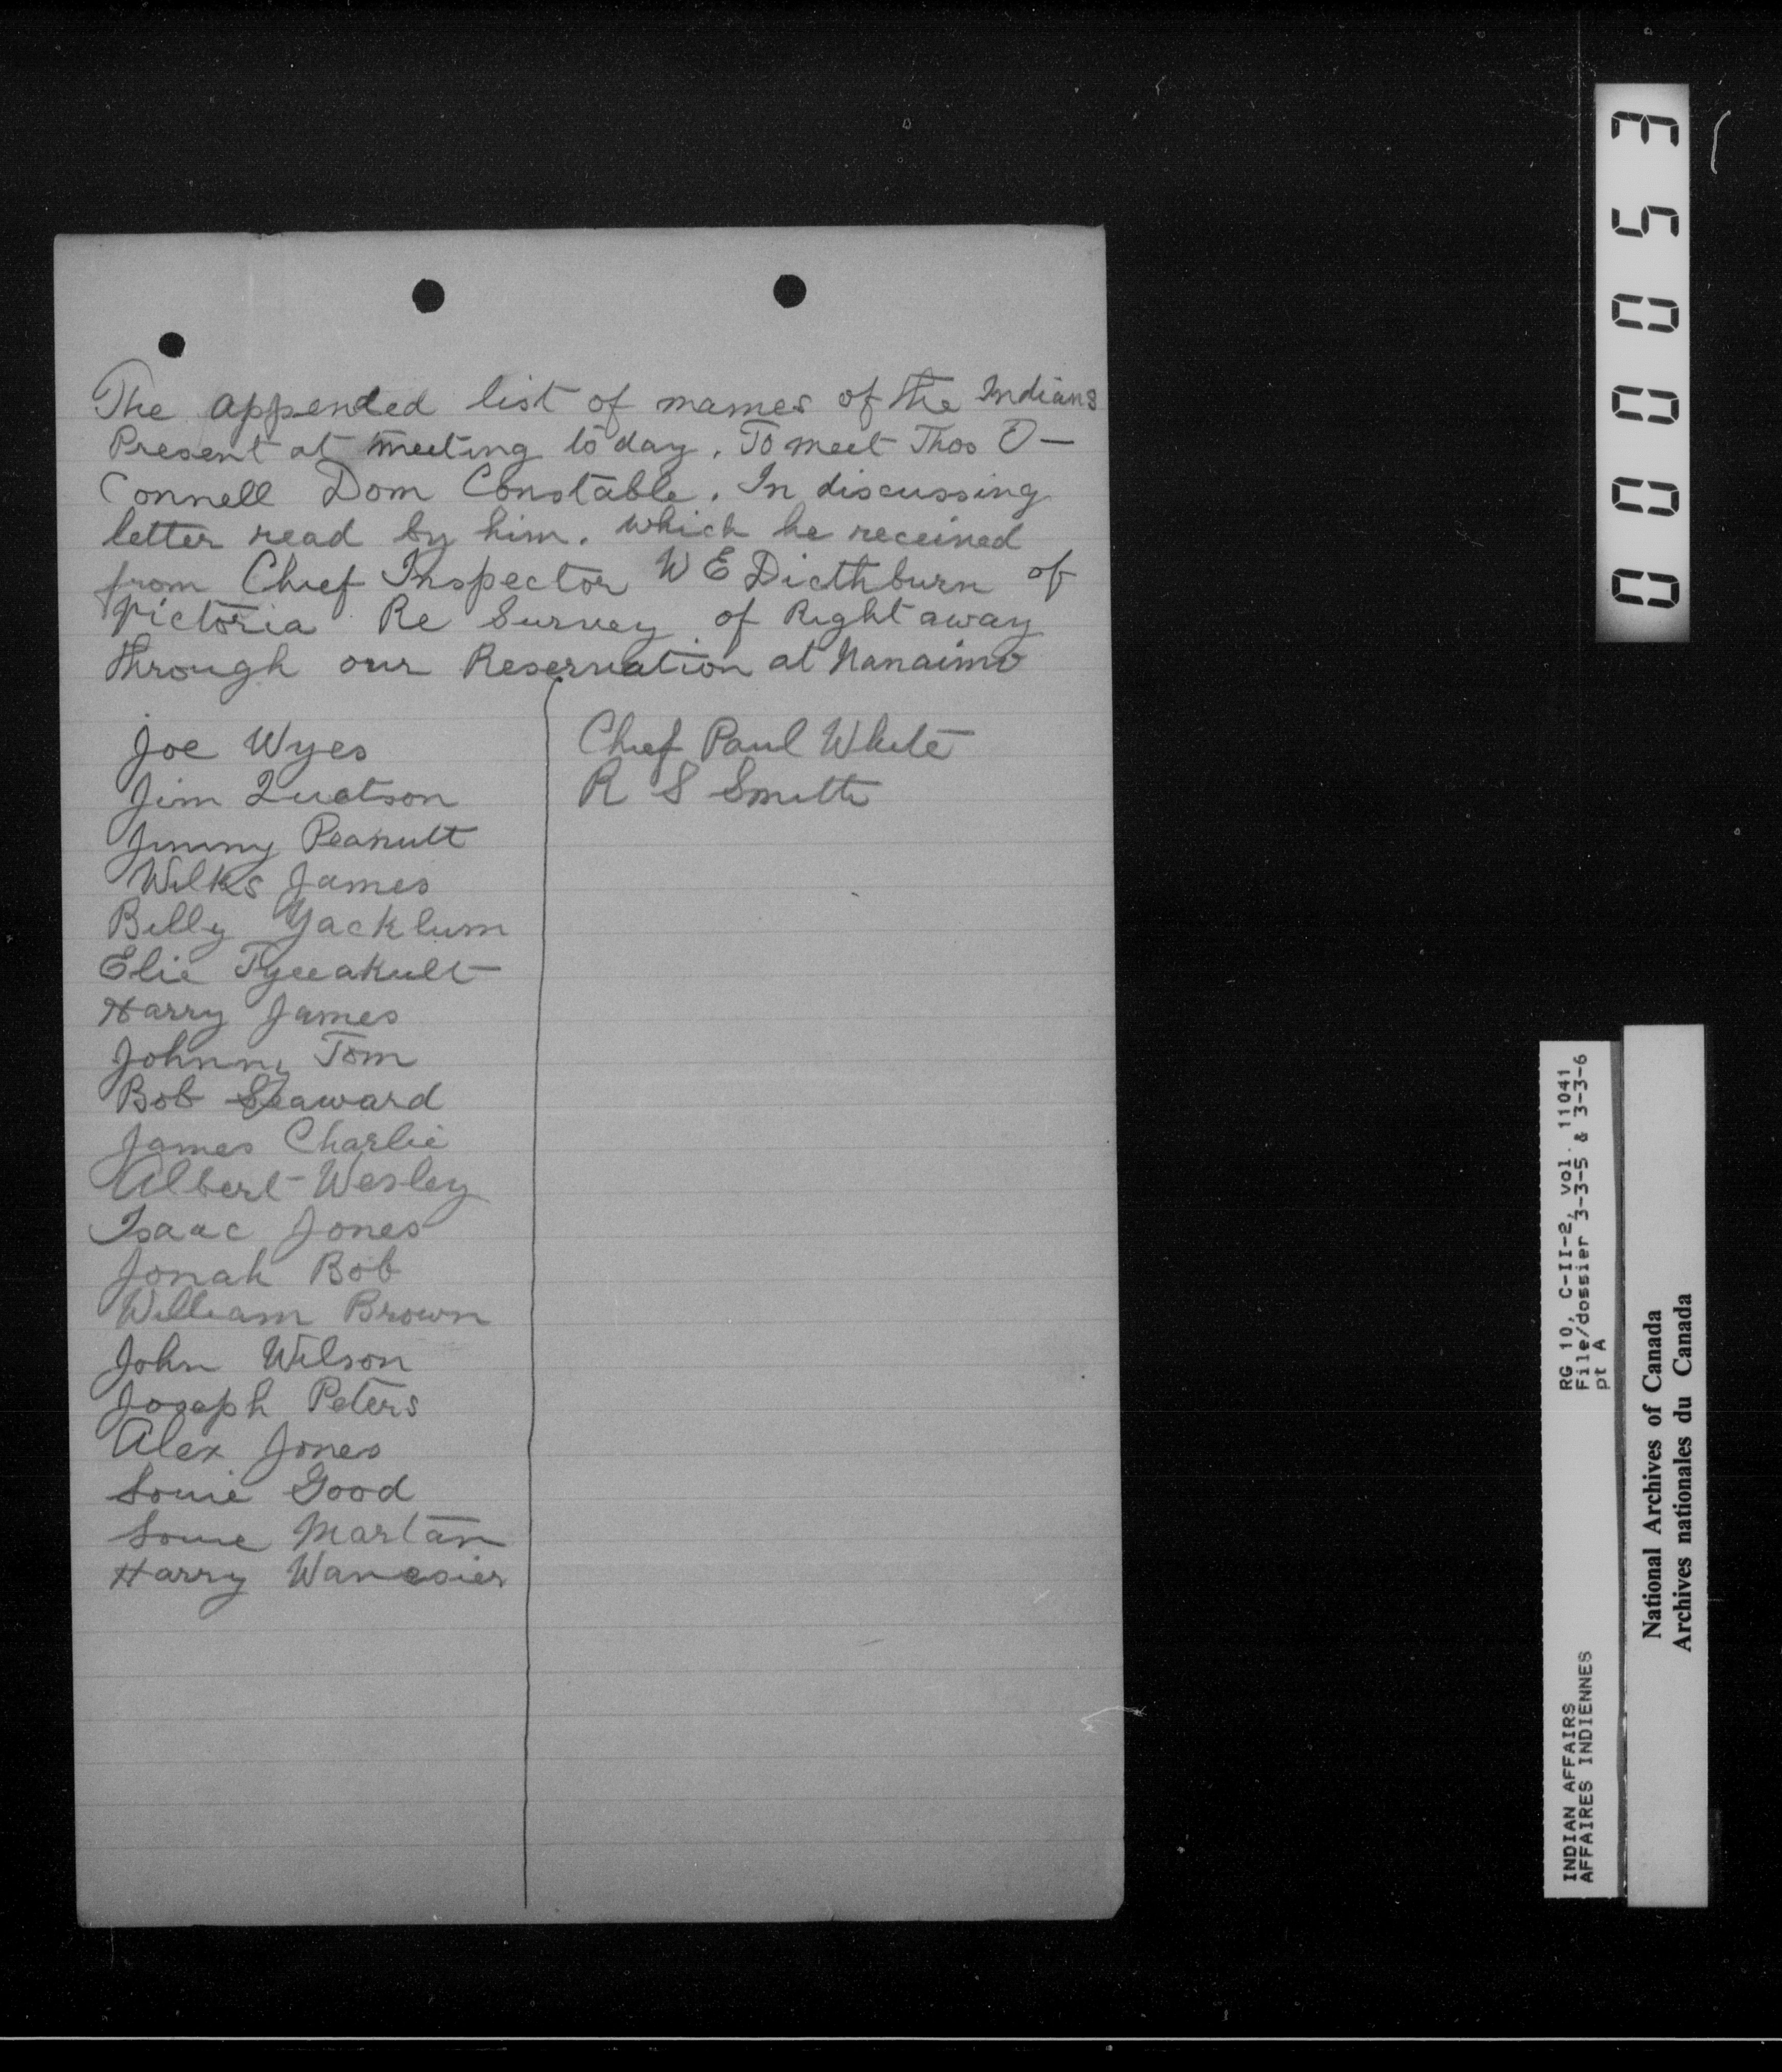 The appended list of names of the Indians
Present at meeting to day. To meet Thos O—
Connell Dom Constable. In discussing
letter read by him. which he received
from Chief Inspector W E Dicthburn of
Victoria Re Survey of Right away
through our Reservation at Nanaimo
Joe Wyes
Jim Quatson
Jimmy Peanult
Wilks James
Billy Yacklum
Elie Tyeeakult
Harry James
Johnny Tom
Bob Seaward
James Charlie
Albert Wesley
Isaac Jones
Jonah Bob
William Brown
John Wilson
Joseph Peters
Alex Jones
Louie Good
Louie Martan
Harry
Chief Paul White
R S Smith
000053
RG 10, C-II-2, vol. 11041,
File/dossier 3-3-5 & 3-3-6
pt A
INDIAN AFFAIRS
AFFAIRES INDIENNES
National Archives of Canada
Archives nationales du Canada